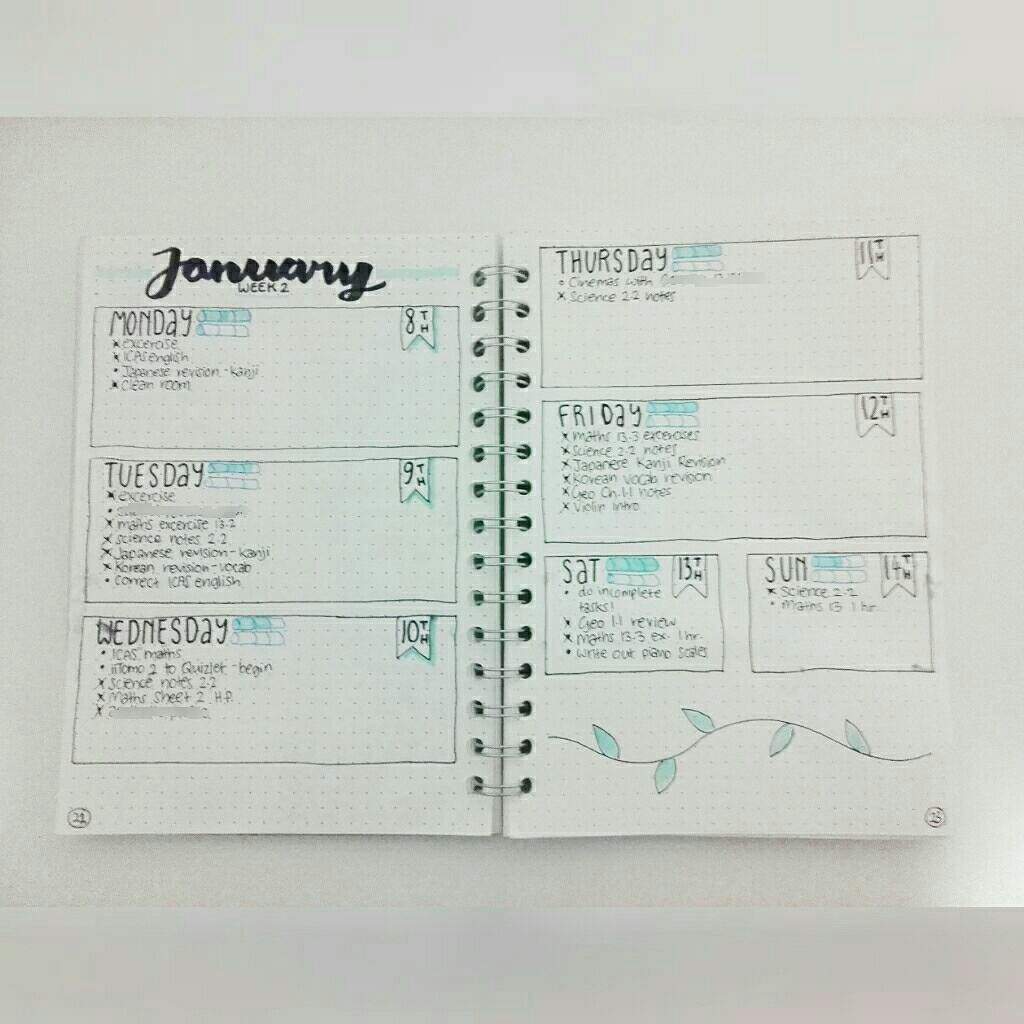 January
WEEK 2
MONDAY
8TH
x excercise
x ICAS english
• Japanese revision - kanji
x clean room
TUESDAY
9TH
x excercise
x maths excercise 13.2
x science notes 2.2
x Japanese revision - kanji
x Korean revision - vocab
• Correct ICAS english
WEDNESDAY
10TH
• ICAS maths
• iiTomo 2 to Quizlet - begin
x science notes 2.2
x Maths Sheet 2 H.P.
THURSDAY
11TH
• Cinemas with
x Science 2.2 notes
FRIDAY
12TH
x maths 13.3 excercises
x Science 2.2 notes
x Japanese Kanji Revision
x Korean vocab revision
x Geo Ch. 1.1 notes
x Violin intro
SAT
13TH
• do incomplete
tasks!
x Geo 1.1 review
x maths 13.3 ex. 1 hr.
• write out piano scales
SUN
14TH
x Science 2.2
• maths 13 1 hr.
23